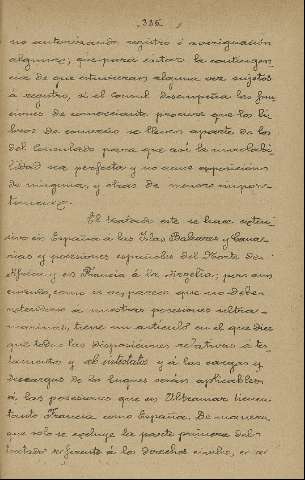 336
no autorizando registro ó averiguación
alguna; que para evitar la contingen
cia de que estuvieran alguna vez sujetos
á registro, si el Consul desempeña las fun
ciones de comerciante procure que los li
bros de comercio se lleven aparte de los
del Consulado para que así la inviolabi
lidad sea perfecta y no cause oposiciones
de ninguna, y otras de menor impor
tancia
El tratado este se hace exten
sivo en España á las Islas Baleares y Cana
rias y posesiones españolas del Norte de
Africa y en Francia á la Argelia; pero aun
cuando, como se ve, parece que no deben
estenderse a nuestras posesiones ultra
marinas, tiene un artículo en el que dice
que todas las disposiciones relativas a tes
tamentos y ab intestatos y á las cargas y
descargas de los buques serán aplicables
á las posesiones que en Ultramar tienen
tanto Francia como España. De manera
que solo se excluye la parte primera del
tratado referente á los derechos civiles, en